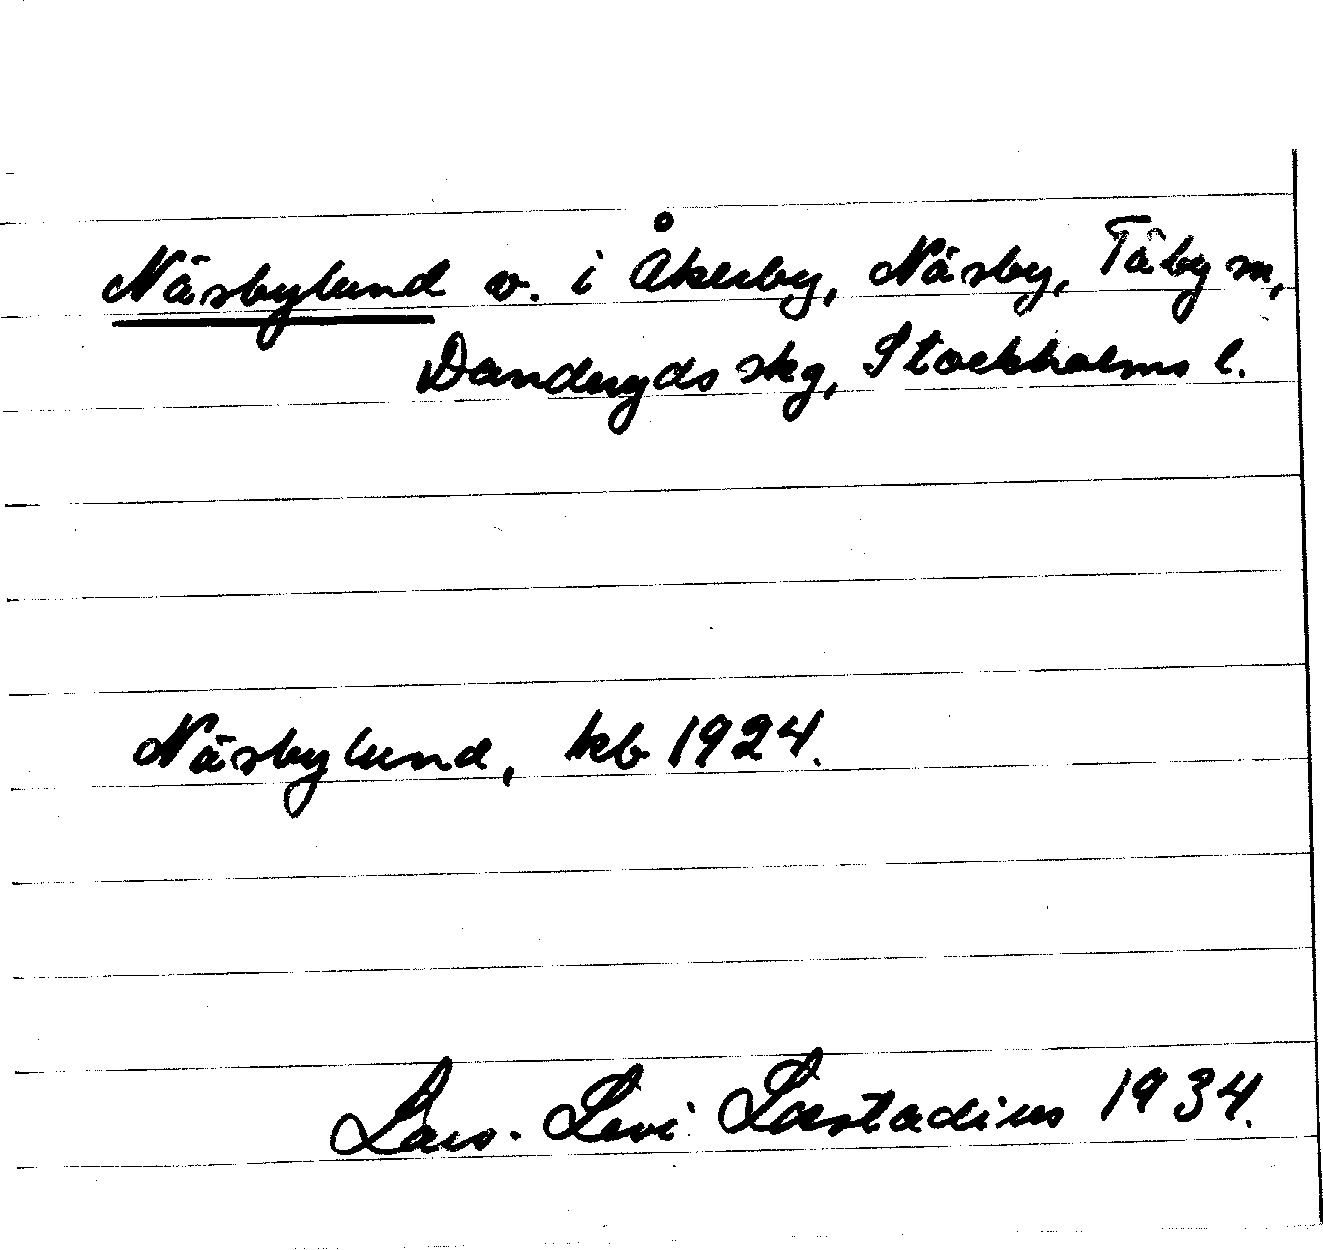 Näsbylund v. i Åkerby, Näsby, Täby sn,
Danderyds skg, Stockholms l.
Näsbylund, kb 1924.
Lars-Levi Læstadius 1934.